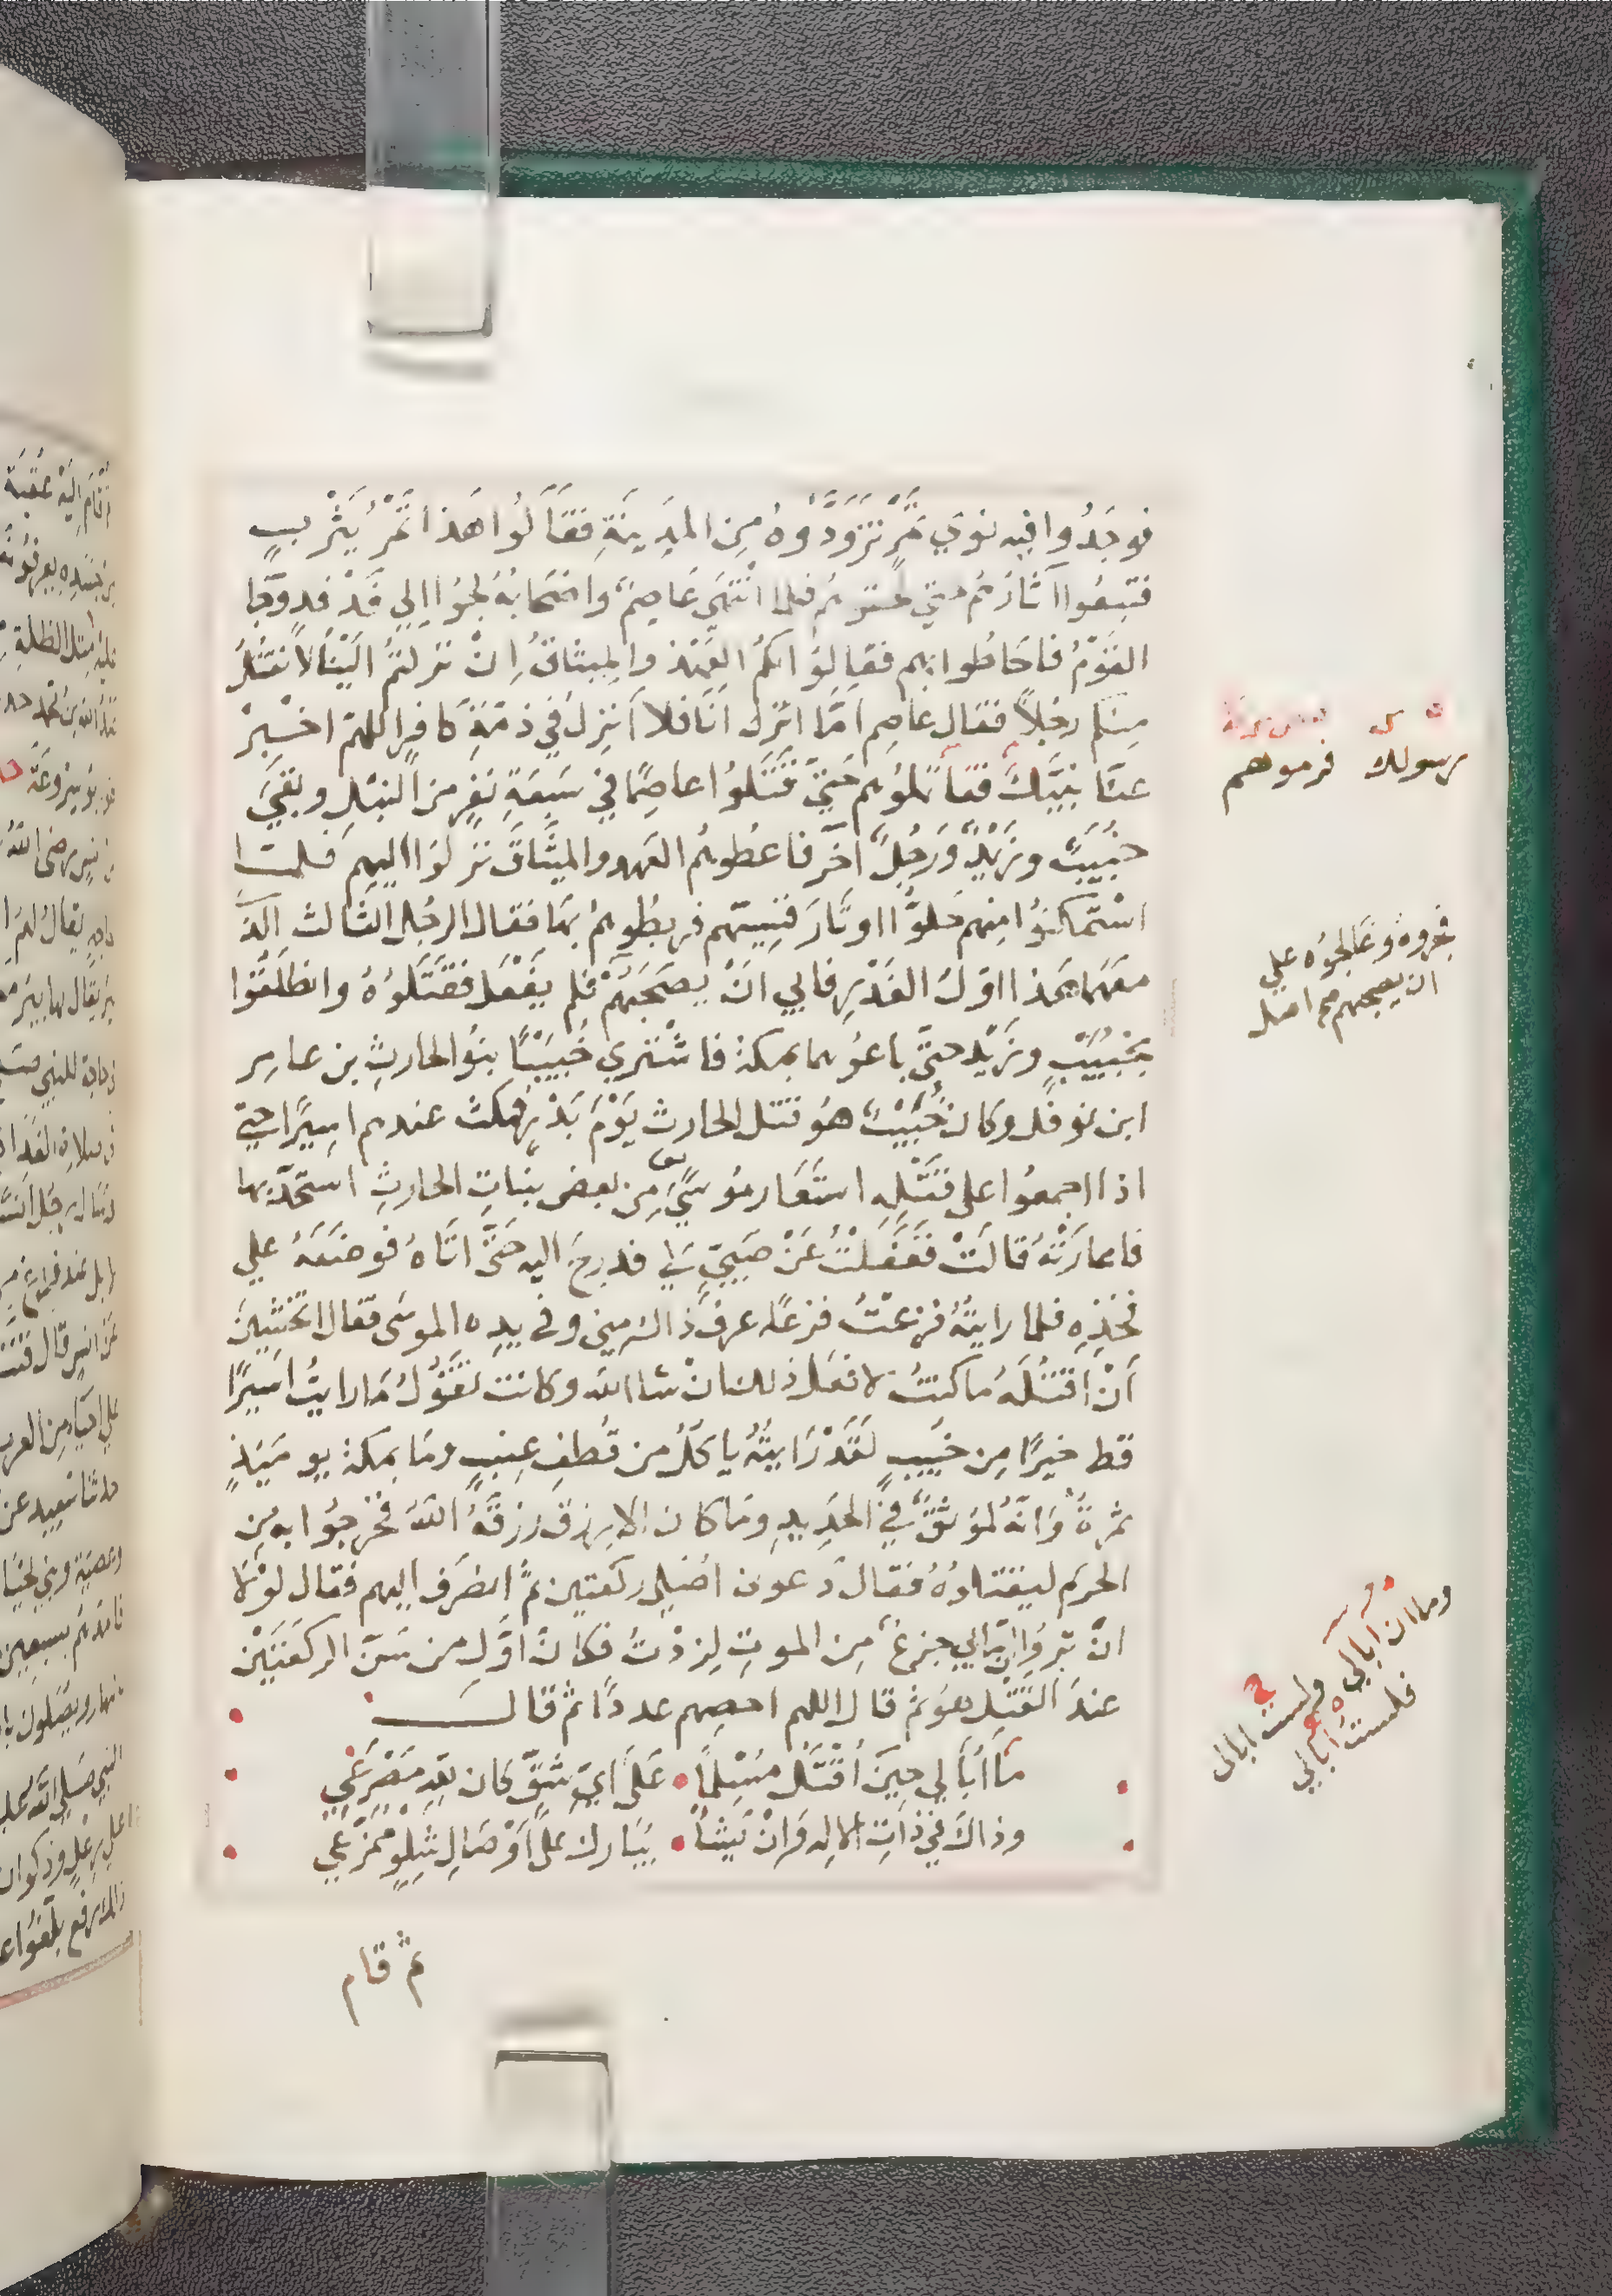 فوجَدُوا فيه نوَي تَمْرٍ تَزَوَّدُوهُ مِنَ المدِينَةِ فقَالُوا هَذا تَمْرُ يَثْرِبَ
فتبعُوا آثارَهُم حتي لحقوهُم فلما انْتَهَي عَاصِمٌ واصْحَابُهُ لجؤا اِلي فَدْفدٍ وجَا
القَوْمُ فاحَاطُوا بهم فقالوُا لكمُ العَهْدُ والميثاقُ اِنْ نَزلتمُ الَيْنَا لا نقتُلُ
مِنكم رجُلاً فقال عاصِم اَمَّا انا فلا اَنزِلُ في ذمّةِ كافِرٍ اللهمّ اخْبِرْ
عنّا نبيَّكَ فقاتلوُهم حَتيّ قتَلوُا عاصِمًا فِي سَبعَةِ نفرٍ مِنَ النبْلِ وبَقيَ
خُبَيبٌ وزَيْدٌ ورَجُلٌ آخر فاعُطوهُم العَهد والميثَاقَ نزلوا اليهِم فلمّا
اسْتمكنوُا مِنهم حَلوُّا اوتَارَ قِسِيّهم فربطُوهمُ بهَا فقال الرجُل الثالث الّذ
معهَما هَذا اوّلُ الغَدْرِ فابي انْ يصحَبَهُمْ فلم يفْعَل فقَتَلوُهُ وانطلَقُوُا
بخُبَيْبٍ وزَيْد حتّي باعوُهما بمكةَ فاشْترَي خُبَيْبًا بنوُ الحارثِ بن عامِر
ابن نوفَل وكان خُبَيْبٌ هوَ قتل الحارث يَوْمَ بَدْرٍ فمكث عندهم اسِيرًا حتّي
اذا اجمعوُا علي قَتْلِه استَعَار مُوسًي مِن بعض بَنَاتِ الحارثِ استحَدّ بها
فاعارَتْهُ قالَتْ فغَفَلْتُ عَنْ صَبيّ لي فدرجَ اليه حَتّي اتَاهُ فوضَعَهُ علي
فخذِهِ فلما رايتُهُ فزعْتُ فزعَةً عرفَ ذاك مِني وفي يدِه الموسَى فقال اتخشَينَ
اَنْ اقتُلَهُ ما كنتُ لافعَل ذلك ان شا الله وكانت تقُولُ مَا رايتُ اسَيرًا
قط خيرًا مِن خبَيبٍ لقَدْ رَايتُهُ ياكلُ من قُطفِ عِنبٍ ومَا بمكة يومَيَذٍ
ثمرةٌ وَانّهُ لموُثَقٌ فِي الحَدِيدِ ومَا كان الا رزق رزقَهُ اللَّهُ فخرجُوا به مِن
الحرم ليقتلوُهُ فقال دَعونِ اصَلي ركعتين ثمَّ انصَرف اليهم فقال لوْلا
انْ تروا انّ مابي جزعٌ مِن الموتِ لزدْتُ فكان اوّلَ من سَنّ الركعَتَيْن
عندَ القَتْلِ هوَ ثم قال اللهم احصِهم عددًا ثم قالَ
مَا اُبَالي حِينَ اُقْتَلُ مسُلِماً • عَلَى ايّ شِقٍّ كان لِلَّهِ مَصْرَعَيِ
وذاكَ فيِ ذاتِ الالِهِ وَانْ يَشأْ • يُبَارك علَى اَوْصَالِ شِلوٍ مُمَزَّعيِ
ثم قام
رسولك فرموهم
فجروه وعَالجوُه علي
ان يصحبهم صح اصل
وما ان ابالي
ولست ابالي
فلستُ اُبالي